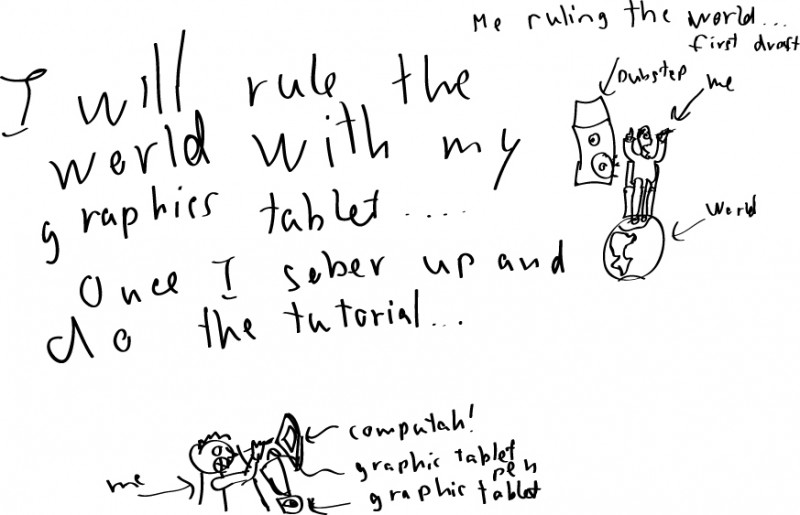 Me ruling the world...
first draft
I will rule the
world with my
graphics tablet....
Once I sober up and
do the tutorial...
Dubstep
me
World
computah!
graphic tablet
pen
graphic tablet
me